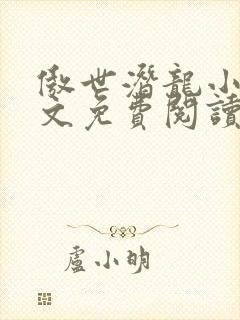 傲世潛龍小
文免費閱讀
盧小明